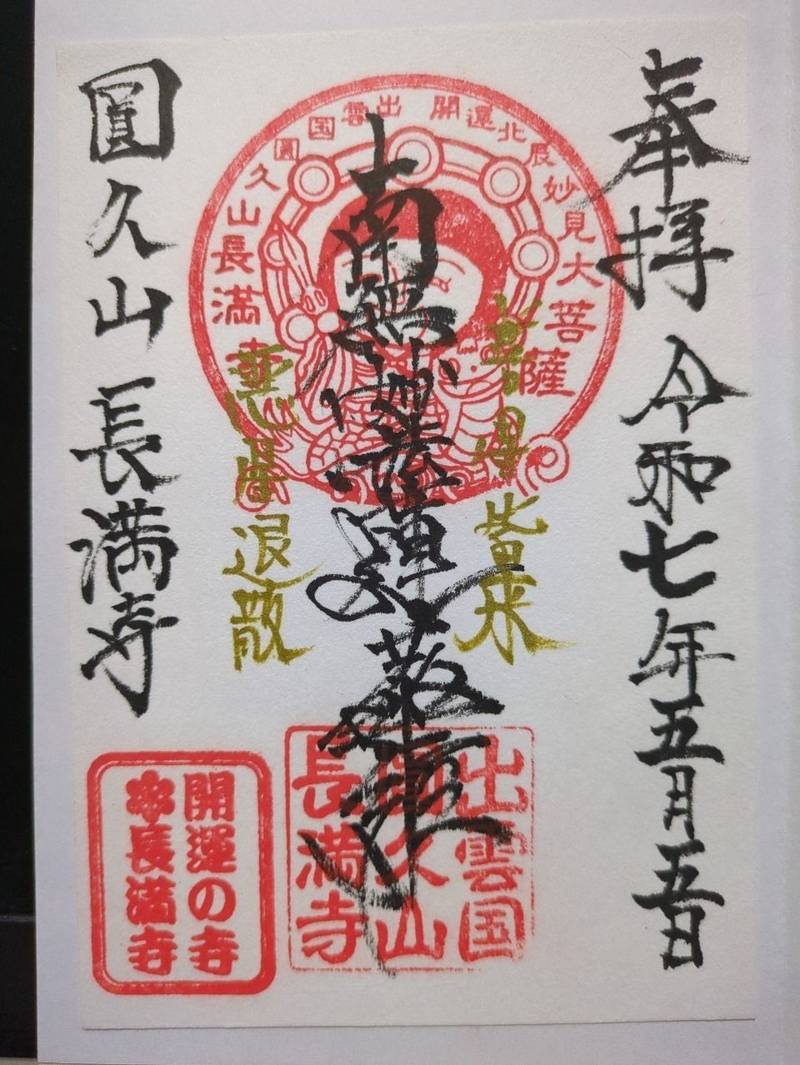 奉拝 令和七年五月五日
開運北辰妙見大菩薩
出雲国圓久山長満寺
善星皆来
南無妙法蓮華経
悪星退散
圓久山 長満寺
出雲国
圓久山
長満寺
開運の寺
長満寺